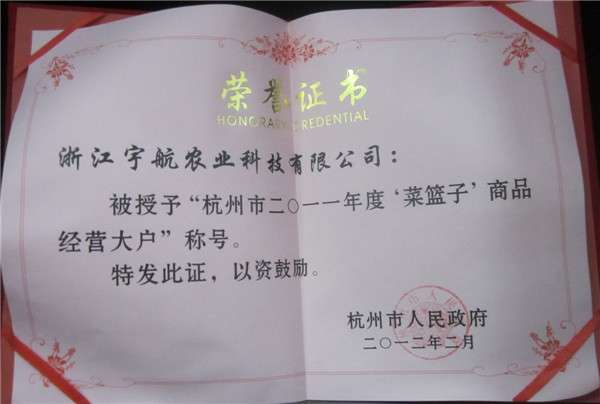 荣誉证书
HONORARY CREDENTIAL
浙江宇航农业科技有限公司：
被授予“杭州市二〇一一年度‘菜篮子’商品
经营大户”称号。
特发此证，以资鼓励。
杭州市人民政府
二〇一二年二月